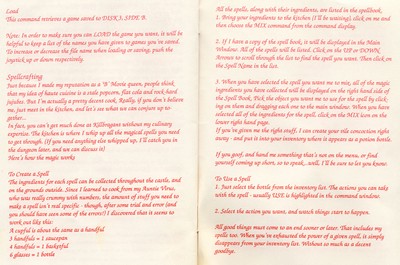 Load
This command retrieves a game saved to DISK 3, SIDE B.
Note: In order to make sure you can LOAD the game you want, it will be
helpful to keep a list of the names you have given to games you've saved.
To increase or discrease the file name when loading or saving; push the
joystick up or down respectively.
Spellcrafting
Just because I made my reputation as a "B" Movie queen, people think
that my idea of haute cuisine is a stale popcorn, flat cola and rock-hard
jujubas. But I'm actually a pretty decent cook. Really, if you don't believe
me, just meet in the kitchen, and let's see what we can conjure up to-
gether...
In fact, you can't get much done at Killbragant without my culinary
expertise. The kitchen is where I whip up all the magical spells you need
to get through. (If you need anything else whipped up, I'll catch you in
the dungeon later, and we can discuss it)
Here's how the magic works
To Create a Spell
The ingredients for each spell can be collected throughout the castle, and
on the grounds outside. Since I learned to cook from my Auntie Virus,
who was really crummy with numbers, the amount of stuff you need to
make a spell isn't real specific - though, after some trial and error (and
you should have seen some of the errors!) I discovered that it seems to
work out like this:
A cupful is about the same as a handful
3 handfuls = 1 saucepan
5 handfuls = 1 backpful
6 glasses = 1 bottle
All the spells, along with their ingredients, are listed in the spellbook.
1. Bring your ingredients to the kitchen (I'll be waiting), click on me and
then choose the MIX command from the command display.
2. If I have a copy of the spell book, it will be displayed in the Main
Window. All of the spells will be listed. Click on the UP or DOWN
Arrows to scroll through the list to find the spell you want. Then click on
the Spell Name in the list.
3. When you have selected the spell you want me to mix, all of the magic
ingredients you have collected will be displayed on the right hand side of
the Spell Book. Pick the object you want me to use for the spell by click-
ing on them and dragging each one to the main window. When you have
selected all of the ingredients for the spell, click on the MIX icon on the
lower right hand page.
If you've given me the right stuff, I can create your tile concoction right
away - and put it into your inventory where it appears as a potion bottle.
If you goof, and hand me something that's not on the menu, or find
yourself coming up short, so to speak...well, I'll be sure to let you know.
To Use a Spell
1. Just select the bottle from the inventory list. The actions you can take
with the spell - usually USE is highlighted in the command window.
2. Select the action you want, and watch things start to happen.
All good things must come to an end sooner or later. That includes my
spells too. When you've exhausted the power of a given spell, it simply
disappears from your inventory list. Without so much as a decent
goodbye.